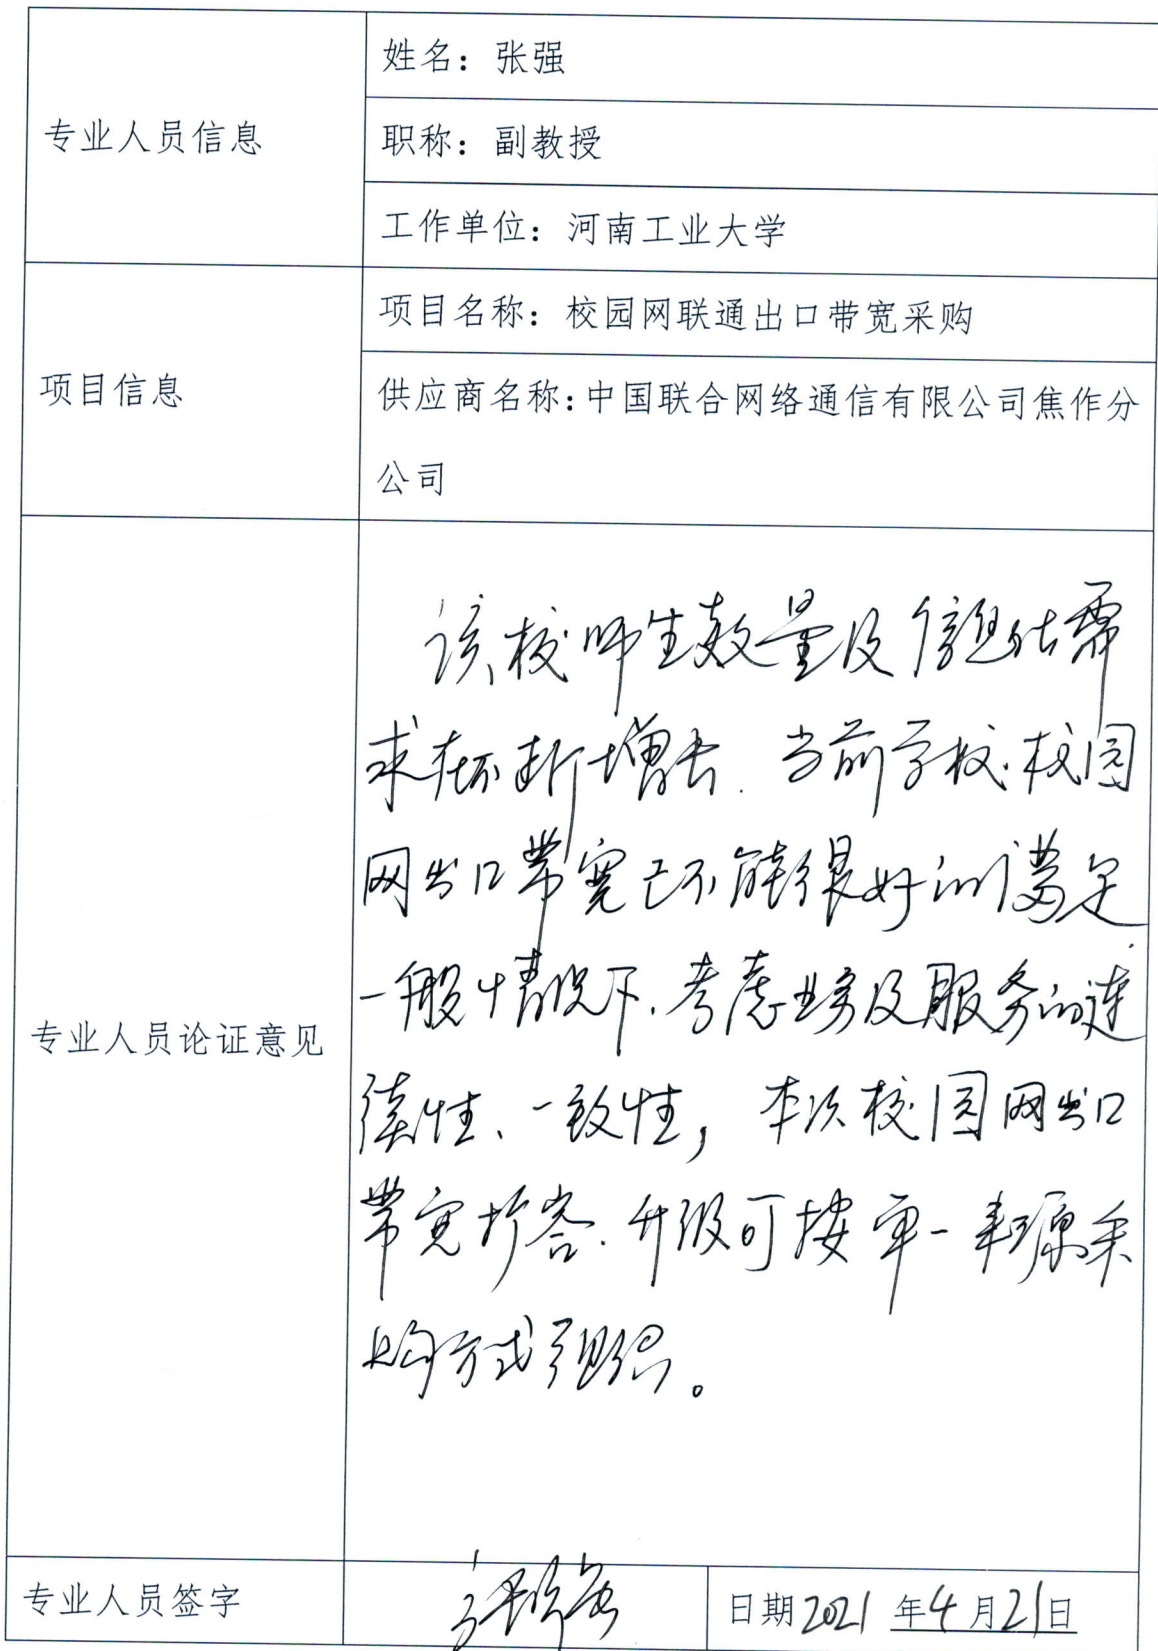 姓名：张强
专业人员信息
职称：副教授
工作单位：河南工业大学
项目名称：校园网联通出口带宽采购
项目信息
供应商名称：中国联合网络通信有限公司焦作分
公司
该校师生数量及信息化需
求在不断增长.当前学校校园
网出口带宽已不能很好的满足
一般情况下.考虑业务及服务的连
专业人员论证意见
续性、一致性，本次校园网出口
带宽扩容.升级可按单一来源采
购方式组织。
专业人员签字
张强
日期2021年4月21日